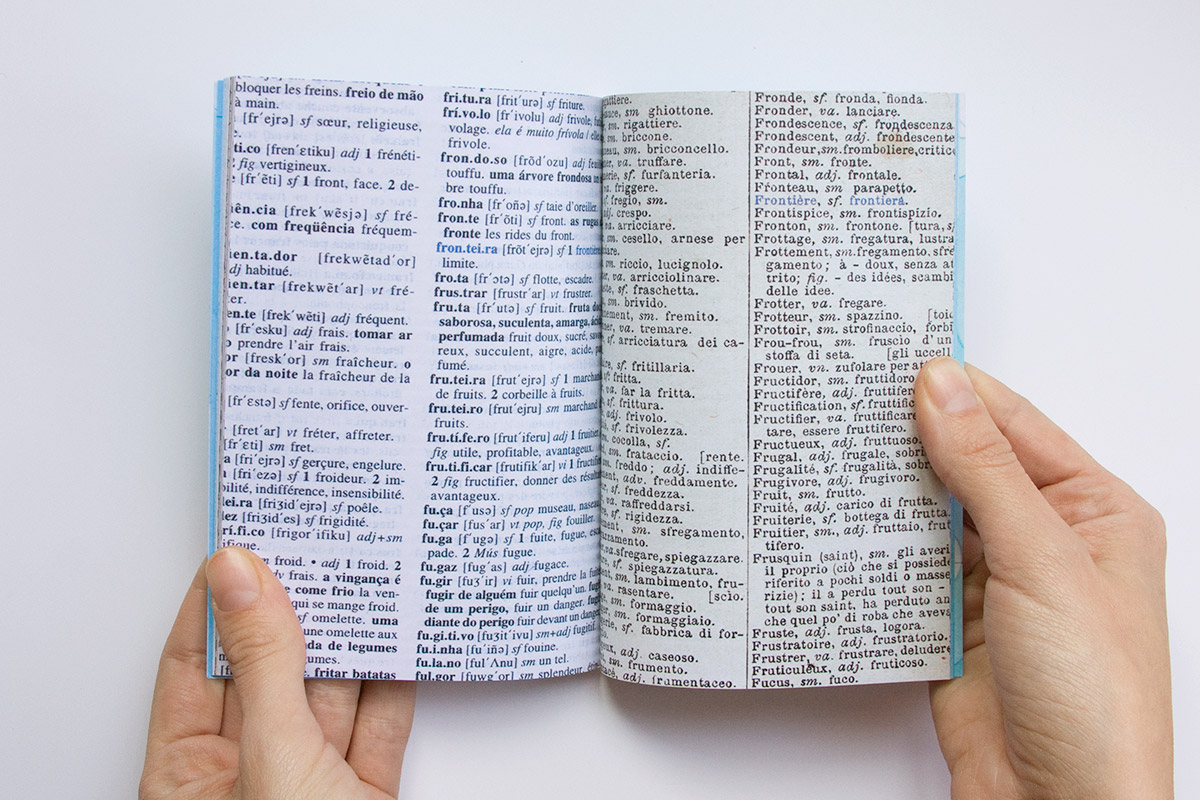 bloquer les freins. freio de mão
à main.
[fr´ejrə] sf sœur, religieuse,
ti.co [fren´ɛtiku] adj 1 frénéti-
fig vertigineux.
[fr´ẽti] sf 1 front, face. 2 de-
ên.cia [frek´wẽsjə] sf fré-
com freqüência fréquem-
en.ta.dor [frekwẽtad´or]
dj habitué.
en.tar [frekwẽt´ar] vt fré-
ter.
en.te [frek´wẽti] adj fréquent.
[fr´esku] adj frais. tomar ar
prendre l'air frais.
or [fresk´or] sm fraîcheur. o
or da noite la fraîcheur de la
[fr´ɛstə] sf fente, orifice, ouver-
[fret´ar] vt fréter, affreter.
[fr´ɛti] sm fret.
a [fri´ejrə] sf gerçure, engelure.
[fri´ezə] sf 1 froideur. 2 im-
bilité, indifférence, insensibilité.
ei.ra [friʒid´ejrə] sf poêle.
ez [friʒid´es] sf frigidité.
rí.fi.co [frigor´ifiku] adj+sm
ifique.
froid. • adj 1 froid. 2
frais. a vingança é
e come frio la ven-
qui se mange froid.
sf omelette. uma
une omelette aux
da de legumes
umes.
fritar batatas
fri.tu.ra [frit´urə] sf friture.
frí.vo.lo [fr´ivolu] adj frivole,
volage. ela é muito frívola / elle
frivole.
fron.do.so [frõd´ozu] adj
touffu. uma árvore frondosa un
bre touffu.
fro.nha [fr´oñə] sf taie d'oreiller.
fron.te [fr´õti] sf front. as rugas
fronte les rides du front.
fron.tei.ra [frõt´ejrə] sf 1 frontière
limite.
fro.ta [fr´ɔtə] sf flotte, escadre.
frus.trar [frustr´ar] vt frustrer.
fru.ta [fr´utə] sf fruit. fruta
saborosa, suculenta, amarga,
perfumada fruit doux, sucré,
reux, succulent, aigre, acide,
fumé.
fru.tei.ra [frut´ejrə] sf 1 marchand
de fruits. 2 corbeille à fruits.
fru.tei.ro [frut´ejru] sm marchand
fruits.
fru.tí.fe.ro [frut´iferu] adj 1 fruitier
fig utile, profitable, avantageux.
fru.ti.fi.car [frutifik´ar] vi 1 fructifier
2 fig fructifier, donner des
avantageux.
fu.ça [f´usə] sf pop museau,
fu.çar [fus´ar] vt pop, fig fouiller.
fu.ga [f´ugə] sf 1 fuite, fugue,
pade. 2 Mús fugue.
fu.gaz [fug´as] adj fugace.
fu.gir [fuʒ´ir] vi fuir, prendre la
fugir de alguém fuir quelqu'un.
de um perigo, fuir un danger.
diante do perigo fuir devant un
fu.gi.ti.vo [fuʒit´ivu] sm+adj fugitif.
fu.i.nha [fu´iñə] sf fouine.
fu.la.no [ful´ʌnu] sm un tel.
ful.gor [fuwg´or] sm splendeur,
sm ghiottone.
sm. rigattiere.
sm. briccone.
sm. bricconcello.
va. truffare.
sf. furfanteria.
friggere.
sf fregio, sm.
crespo.
va. arricciare.
sm. cesello, arnese per
sm. riccio, lucignolo.
va. arricciolinare.
sf. fraschetta.
sm. brivido.
sm. fremito.
va. tremare.
sf. arricciatura dei ca-
sf. fritillaria.
sf. fritta.
va. far la fritta.
sf. frittura.
adj. frivolo.
sf. frivolezza.
cocolla, sf.
sm. frataccio. [rente.
sm. freddo; adj. indiffe-
adv. freddamente.
sf. freddezza.
va. raffreddarsi.
sf. rigidezza.
sm. sfregamento,
va. sfregare, spiegazzare.
sf. spiegazzatura.
sm. lambimento, fru-
va. rasentare. [scìo.
sm. formaggio.
sm. formaggiaio.
sf. fabbrica di for-
adj. caseoso.
sm. frumento.
adj. frumentaceo.
Fronde, sf. fronda, fionda.
Fronder, va. lanciare.
Frondescence, sf. frondescenza
Frondescent, adj. frondescente
Frondeur, sm. fromboliere, critico
Front, sm. fronte.
Frontal, adj. frontale.
Fronteau, sm parapetto.
Frontière, sf. frontiera.
Frontispice, sm. frontispizio.
Fronton, sm. frontone. [tura, sf
Frottage, sm. fregatura, lustra
Frottement, sm. fregamento, sfre
gamento; à - doux, senza at
trito; fig. - des idées, scambi
delle idee.
Frotter, va. fregare.
Frotteur, sm. spazzino. [toio
Frottoir, sm. strofinaccio, forbi
Frou-frou, sm. fruscio d'un
stoffa di seta. [gli uccell
Frouer, vn. zufolare per
Fructidor, sm. fruttidoro
Fructifère, adj. fruttifero
Fructification, sf. fruttific
Fructifier, va. fruttificare
tare, essere fruttifero.
Fructueux, adj. fruttuoso.
Frugal, adj. frugale, sobri
Frugalité, sf. frugalità, sobr
Frugivore, adj. frugivoro.
Fruit, sm. frutto.
Fruité, adj. carico di frutta.
Fruiterie, sf. bottega di frutta.
Fruitier, sm., adj. fruttaio, frut
tifero.
Frusquin (saint), sm. gli averi
il proprio (ciò che si possiede
riferito a pochi soldi o masse
rizie); il a perdu tout son -
tout son saint, ha perduto an
che quel po' di roba che aveva
Fruste, adj. frusta, logora.
Frustratoire, adj. frustratorio.
Frustrer, va. frustrare, deludere
Fruticuleux, adj. fruticoso.
Fucus, sm. fuco.